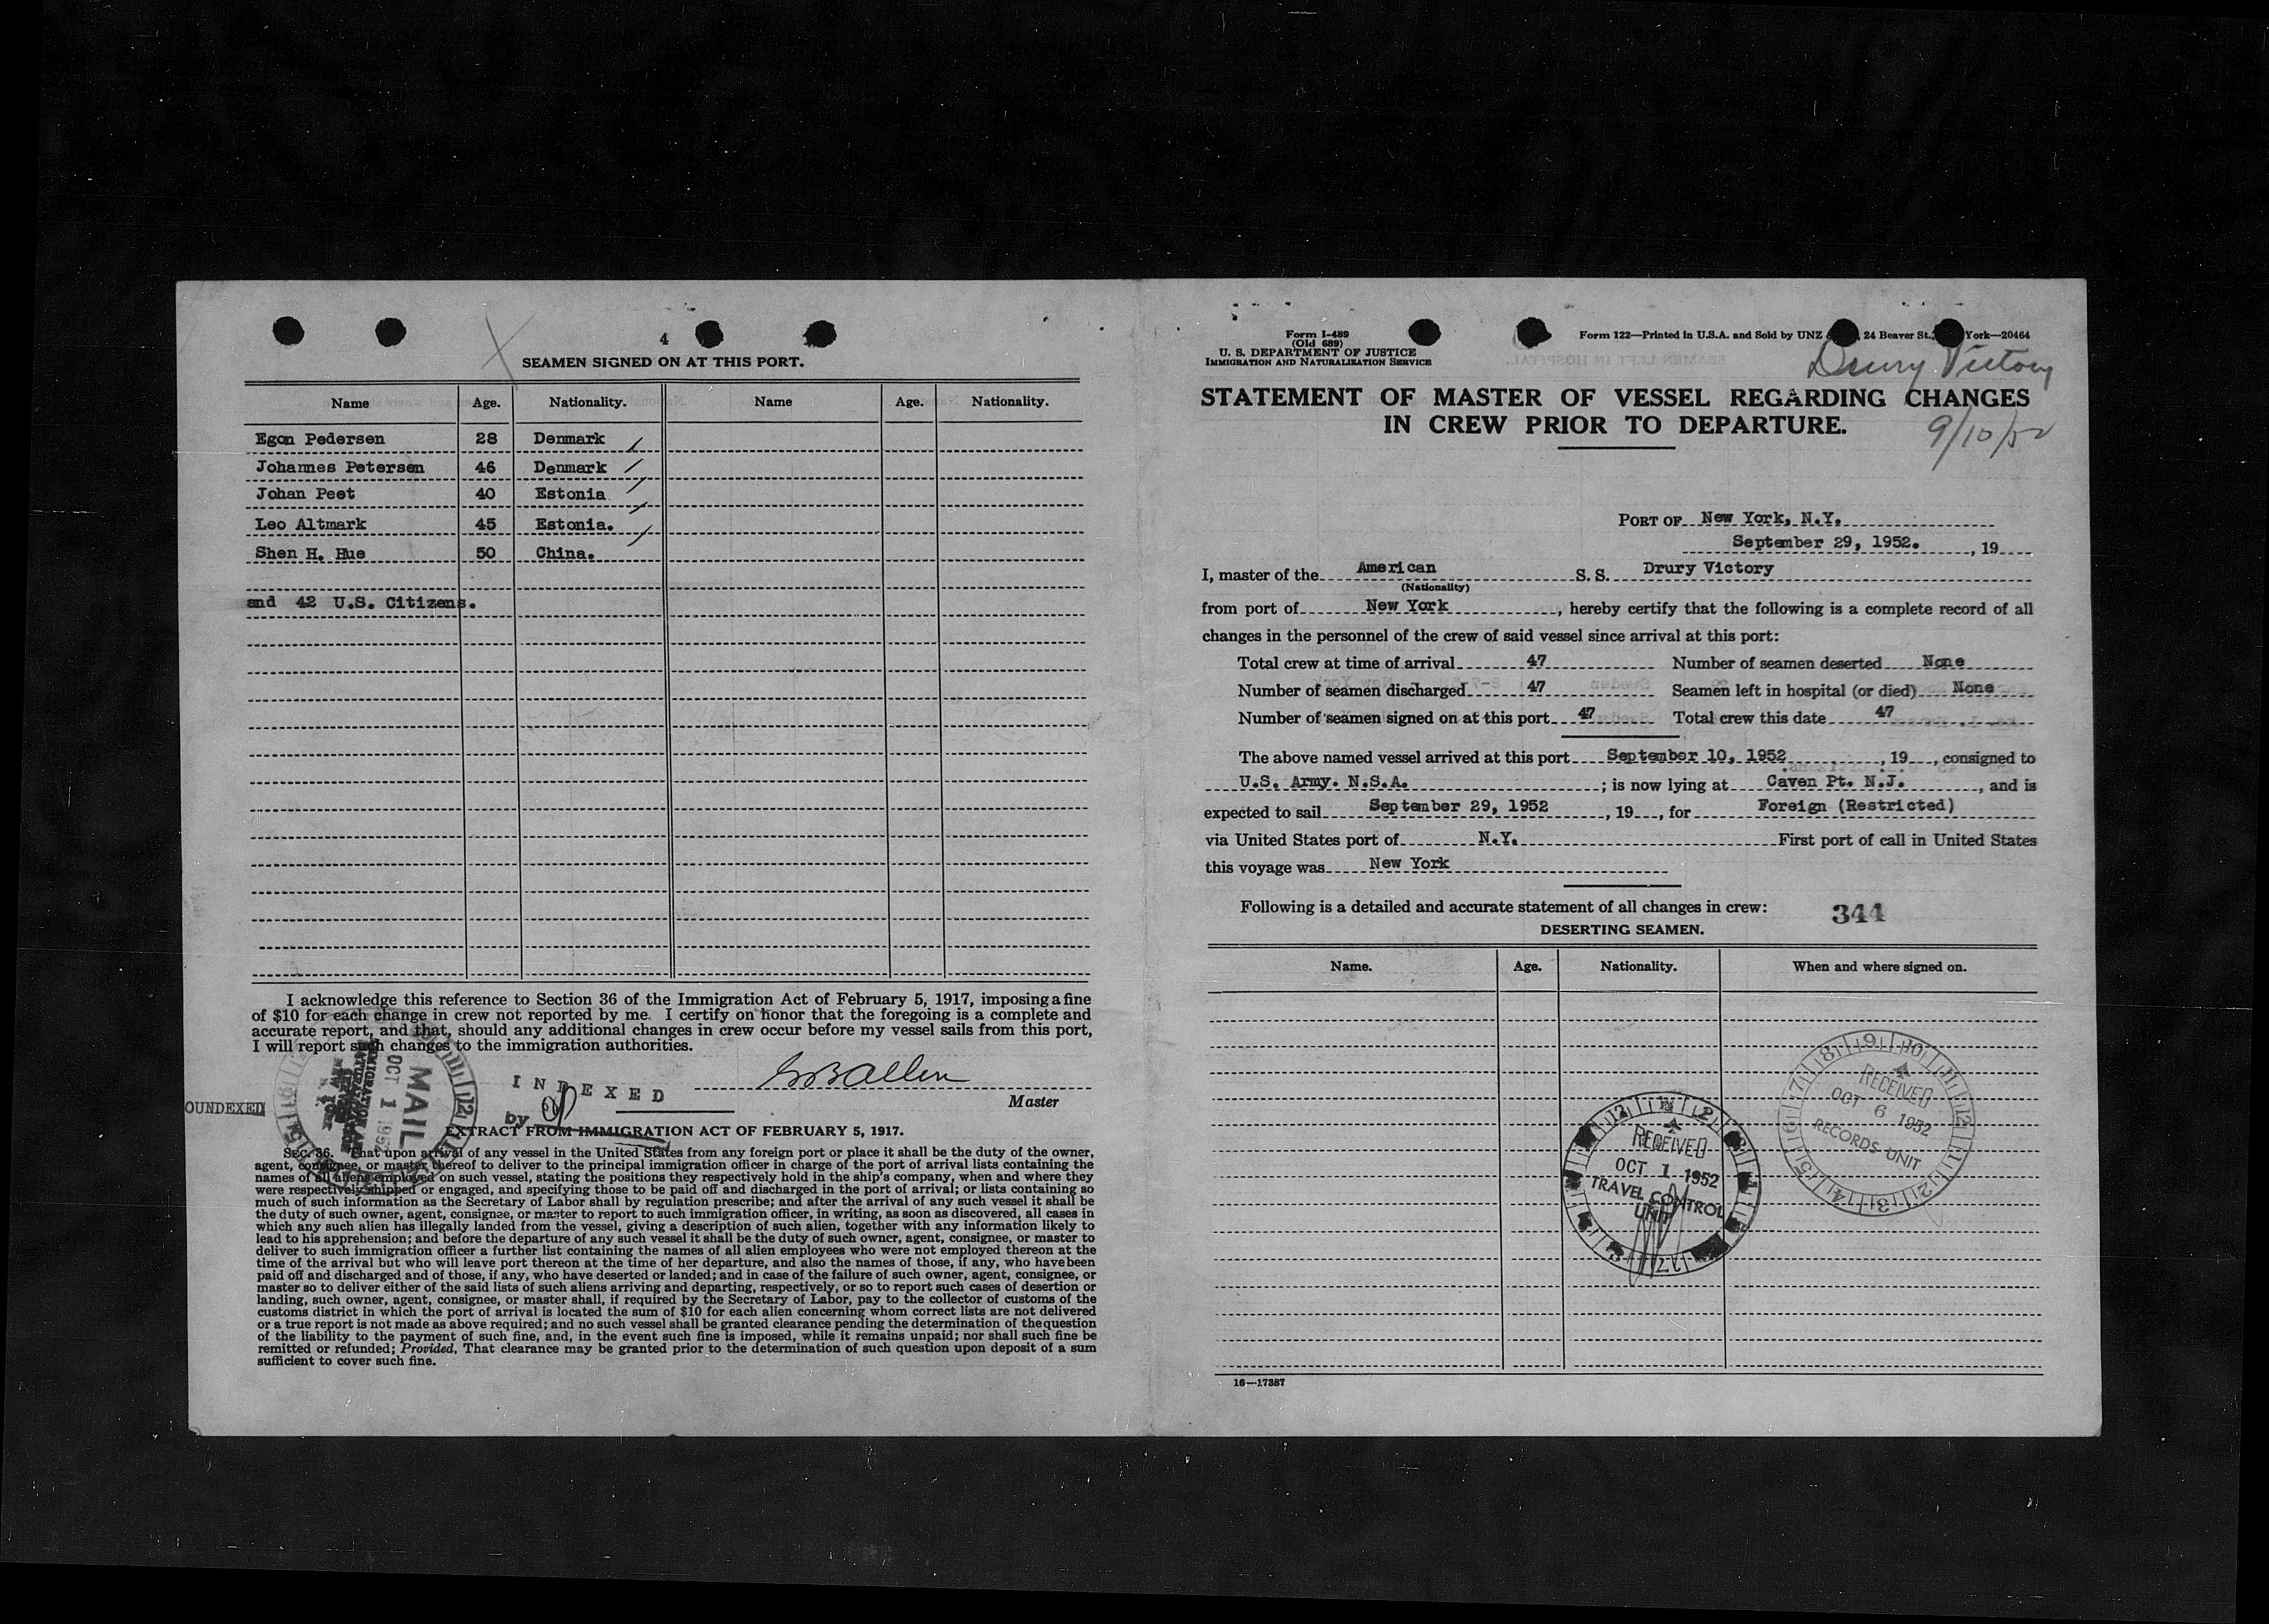 4
SEAMEN SIGNED ON AT THIS PORT.
Name Age. Nationality. Name Age. Nationality.
Egon Pedersen 28 Denmark
Johannes Petersen 46 Denmark
Johan Peet 40 Estonia
Leo Altmark 45 Estonia.
Shen H. Hue 50 China.
and 42 U.S. Citizens.
I acknowledge this reference to Section 36 of the Immigration Act of February 5, 1917, imposing a fine
of $10 for each change in crew not reported by me. I certify on honor that the foregoing is a complete and
accurate report, and that, should any additional changes in crew occur before my vessel sails from this port,
I will report such changes to the immigration authorities.
Master
INDEXED
by
OUNDEXED
MAIL
OCT 1 1952
EXTRACT FROM IMMIGRATION ACT OF FEBRUARY 5, 1917.
SEC. 36. That upon arrival of any vessel in the United States from any foreign port or place it shall be the duty of the owner,
agent, consignee, or master thereof to deliver to the principal immigration officer in charge of the port of arrival lists containing the
names of all aliens employed on such vessel, stating the positions they respectively hold in the ship's company, when and where they
were respectively shipped or engaged, and specifying those to be paid off and discharged in the port of arrival; or lists containing so
much of such information as the Secretary of Labor shall by regulation prescribe; and after the arrival of any such vessel it shall be
the duty of such owner, agent, consignee, or master to report to such immigration officer, in writing, as soon as discovered, all cases in
which any such alien has illegally landed from the vessel, giving a description of such alien, together with any information likely to
lead to his apprehension; and before the departure of any such vessel it shall be the duty of such owner, agent, consignee, or master to
deliver to such immigration officer a further list containing the names of all alien employees who were not employed thereon at the
time of the arrival but who will leave port thereon at the time of her departure, and also the names of those, if any, who have been
paid off and discharged and of those, if any, who have deserted or landed; and in case of the failure of such owner, agent, consignee, or
master so to deliver either of the said lists of such aliens arriving and departing, respectively, or so to report such cases of desertion or
landing, such owner, agent, consignee, or master shall, if required by the Secretary of Labor, pay to the collector of customs of the
customs district in which the port of arrival is located the sum of $10 for each alien concerning whom correct lists are not delivered
or a true report is not made as above required; and no such vessel shall be granted clearance pending the determination of the question
of the liability to the payment of such fine, and, in the event such fine is imposed, while it remains unpaid; nor shall such fine be
remitted or refunded; Provided, That clearance may be granted prior to the determination of such question upon deposit of a sum
sufficient to cover such fine.
Form I-489
(Old 689)
U. S. DEPARTMENT OF JUSTICE
IMMIGRATION AND NATURALIZATION SERVICE
Form 122—Printed in U.S.A. and Sold by UNZ 24 Beaver St., York—20464
Drury Victory
STATEMENT OF MASTER OF VESSEL REGARDING CHANGES
IN CREW PRIOR TO DEPARTURE.
9/10/52
PORT OF New York, N.Y.
September 29, 1952. , 19
I, master of the American S. S. Drury Victory
(Nationality)
from port of New York , hereby certify that the following is a complete record of all
changes in the personnel of the crew of said vessel since arrival at this port:
Total crew at time of arrival 47 Number of seamen deserted None
Number of seamen discharged 47 Seamen left in hospital (or died) None
Number of seamen signed on at this port 47 Total crew this date 47
The above named vessel arrived at this port September 10, 1952 , 19 , consigned to
U.S. Army. N.S.A. ; is now lying at Caven Pt. N.J. , and is
expected to sail September 29, 1952 , 19 , for Foreign (Restricted)
via United States port of N.Y. First port of call in United States
this voyage was New York
Following is a detailed and accurate statement of all changes in crew: 344
DESERTING SEAMEN.
Name. Age. Nationality. When and where signed on.
RECEIVED
OCT 6 1952
RECORDS UNIT
RECEIVED
OCT 1 1952
TRAVEL CONTROL
UNIT
16—17387